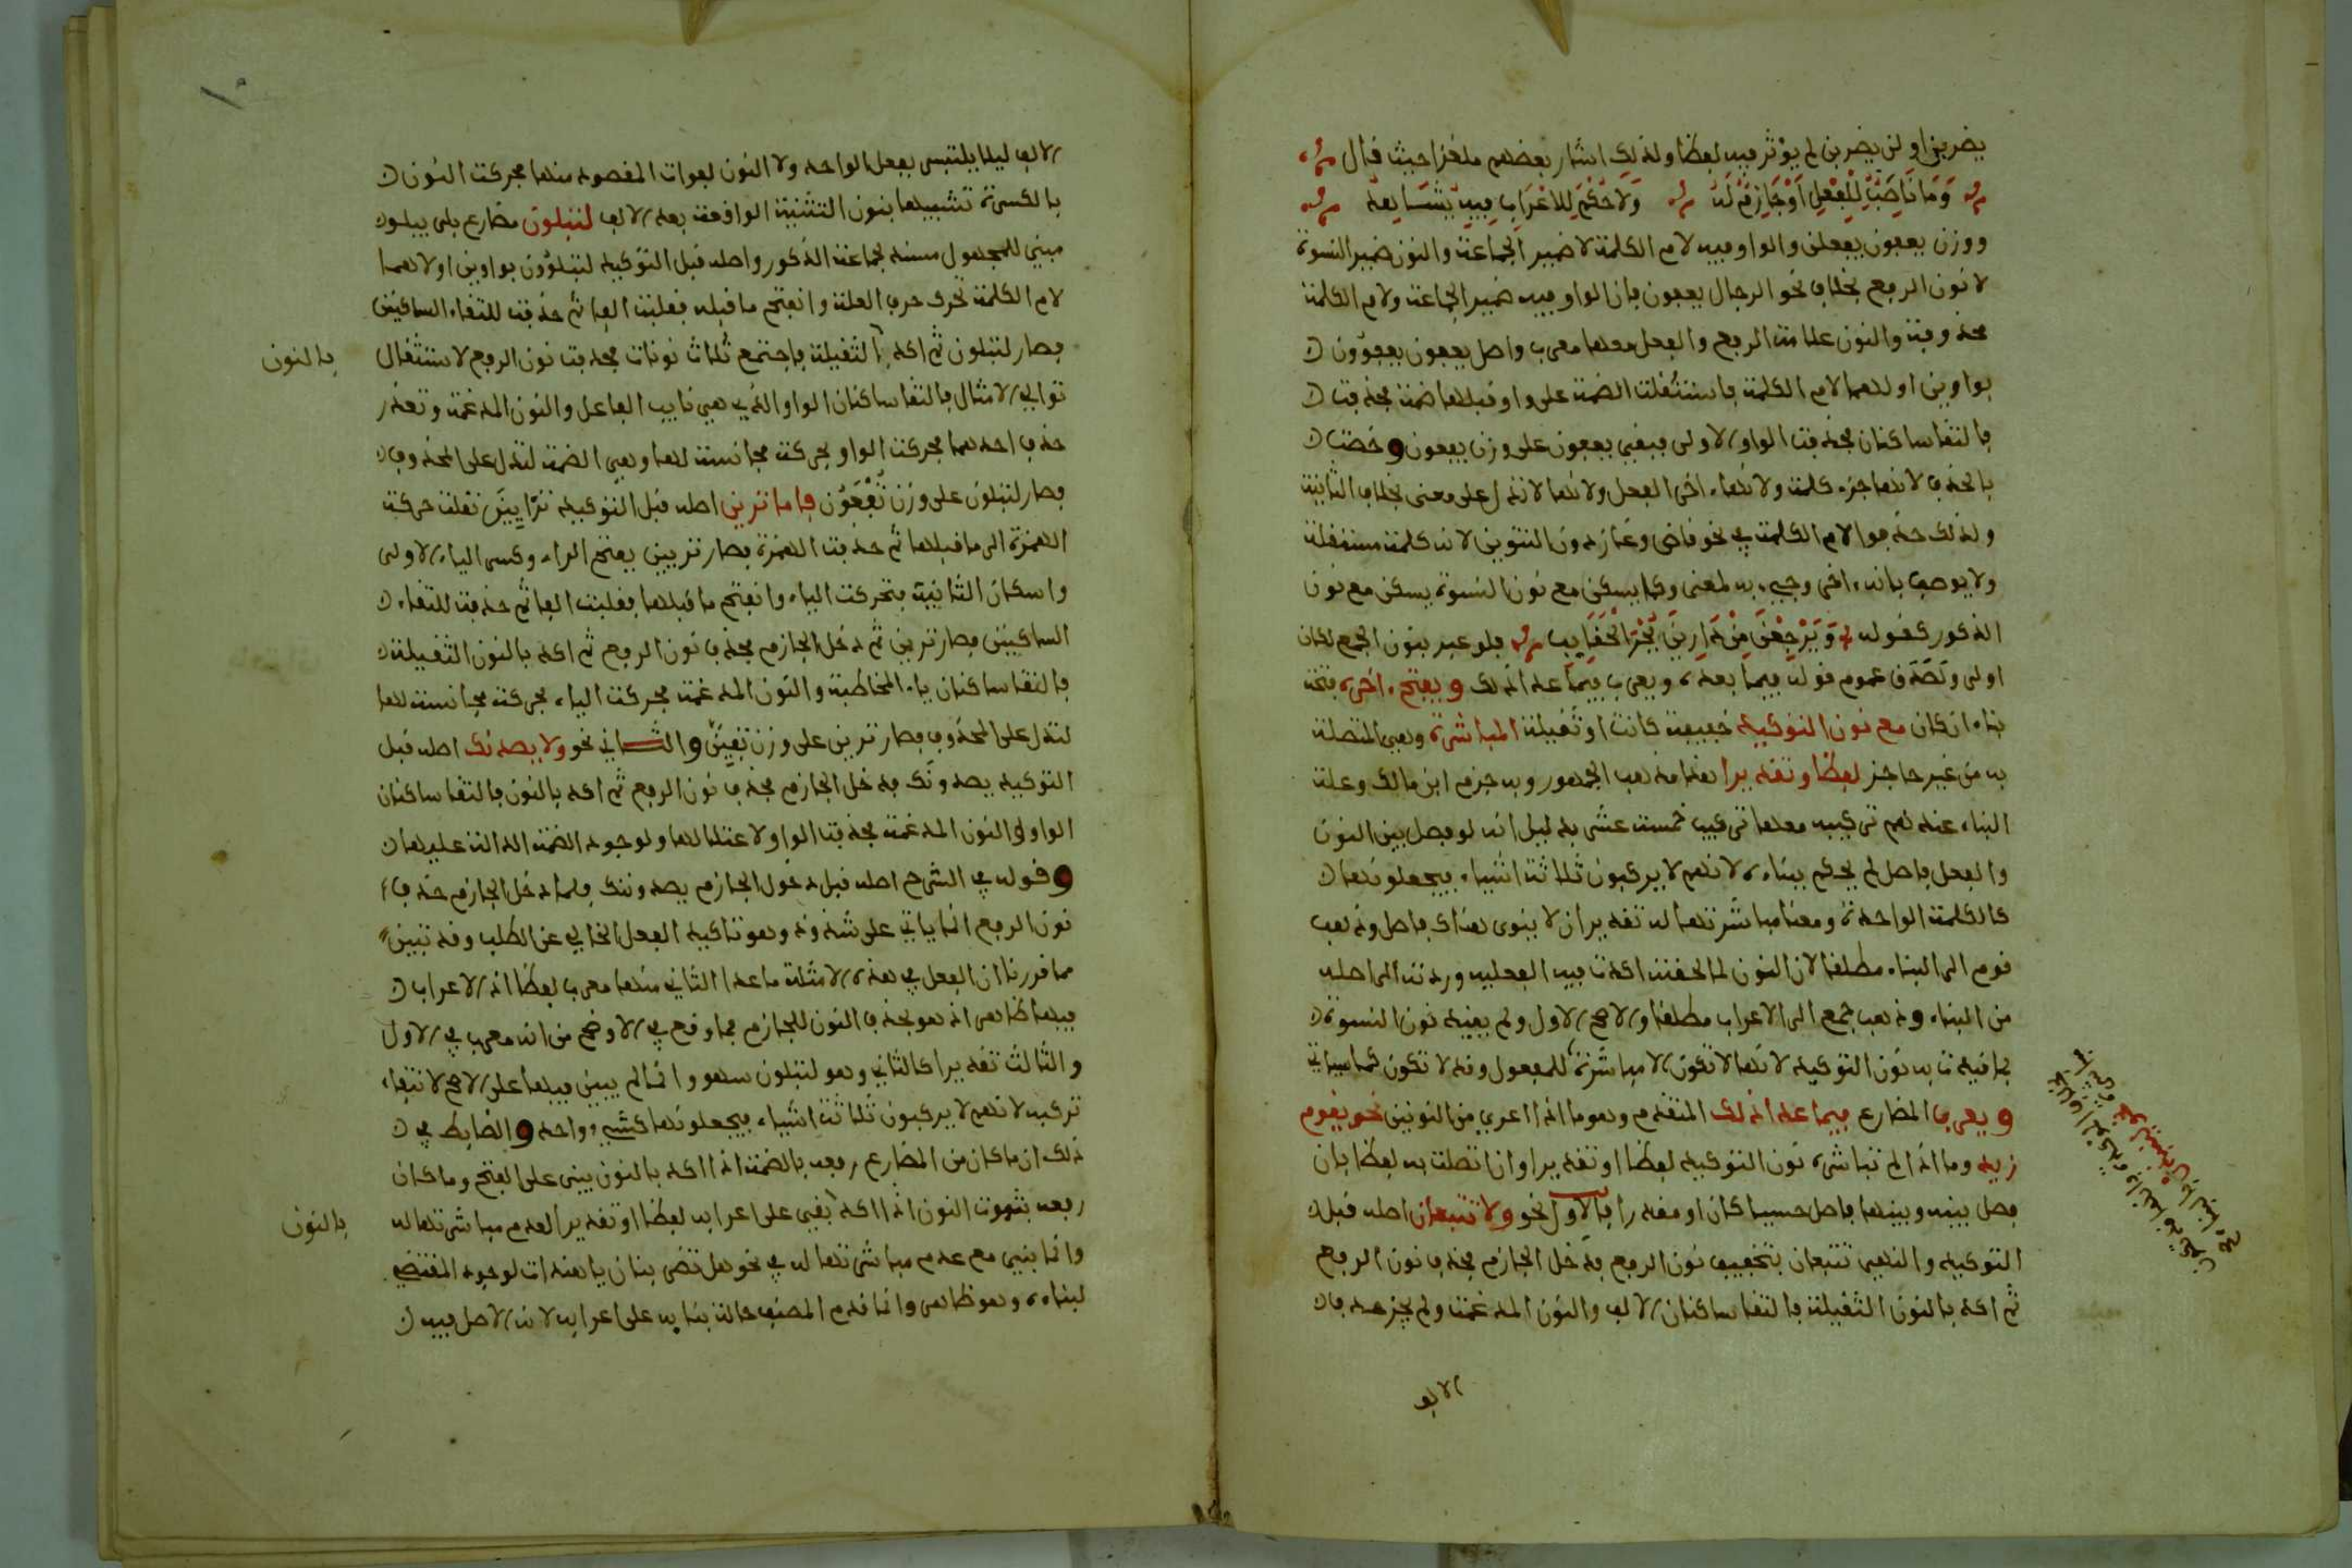 يضربن او لن يضربن لم يوثر فيه لفظا ولذلك اشار بعضهم ملغزا حيث قال
وَمَا نَاصِبٌ لِلْفِعْلِ أَوْ جَازِمٌ لَهُ وَلاَ حُكْمَ لِلاعْرَابِ فِيهِ يُشَاهَدُ
ووزن يعفون يفعلن والواو فيه لام الكلمة لا ضمير الجماعة والنون ضمير النسوة
لا نون الرفع بخلاف نحو الرجال يعفون فان الواو فيه ضمير الجماعة ولام الكلمة
محذوفة والنون علامة الرفع والفعل معها معرب واصل يعفون يعفوون
بواوين اولاهما لام الكلمة فاستثقلت الضمة على واو قبلها ضمة فحذفت
فالتقا ساكنان فحذفت الواو الاولى فبقي يعفون على وزن يفعون وخصت
بالحذف لانها جزء كلمة ولانها اخر الفعل ولانها لا تدل على معنى بخلاف الثانية
ولذلك حذفوا لام الكلمة في نحو قاض وغاز دون التنوين لانه كلمة مستقلة
ولا يوصف بانه اخر وجيء به لمعنى وكما يسكن مع نون النسوة يسكن مع نون
الذكور كقوله وَيَرْجِعْنَ مِنْ دَارِينَ بُجْرَ الْحَقَايِب فلو عبر بنون الجمع لكان
اولى وتصدق عموم قوله فيما بعده ويعرب فيما عدا ذلك ويفتح اخره فتحة
بناء ان كان مع نون التوكيد خفيفة كانت او ثقيلة المباشرة وهي المتصلة
به من غير حاجز لفظا وتقديرا هذا مذهب الجمهور وبه جزم ابن مالك وعلة
البناء عندهم تركيبه معها تركيب خمسة عشر بدليل انه لو فصل بين النون
والفعل فاصل لم يحكم ببناءه لانهم لا يركبون ثلاثة اشياء فيجعلونها
كالكلمة الواحدة ومعنا مباشرتها له تقديرا ان لا ينوى هناك فاصل وذهب
قوم الى البناء مطلقا لان النون لما لحقته اكدت فيه الفعلية وردته الى اصله
من البناء وذهب جمع الى الاعراب مطلقا والاصح الاول ولم يقيد نون النسوة
بما قيد به نون التوكيد لانها لا تكون الا مباشرة للمفعول وقد لا تكون كما سياتي
ويعرب المضارع فيما عدا ذلك المتقدم وهو ما اذا عري من النونين نحو يقوم
زيد وما اذا لم تباشره نون التوكيد لفظا او تقديرا وان اتصلت به لفظا بان
فصل بينه وبينها فاصل حسيا كان او مقدرا فالاول نحو ولا تتبعان اصله قبل
التوكيد والنهي تتبعان بتخفيف نون الرفع فدخل الجازم فحذف نون الرفع
ثم اكد بالنون الثقيلة فالتقا ساكنان الالف والنون المدغمة ولم يجز حذف
الالف
الالف ليلا يلتبس بفعل الواحد ولا النون لفوات المقصود منها فحركت النون
بالكسرة تشبيها بنون التثنية الواقعة بعد الالف لتبلون مضارع بلى يبلو
مبني للمجهول مسند لجماعة الذكور واصله قبل التوكيد لتبلوون بواوين اولاهما
لام الكلمة تحرك حرف العلة وانفتح ما قبله فقلبت الفا ثم حذفت للتقاء الساكنين
فصار لتبلون ثم اكد الثقيلة فاجتمع ثلاث نونات فحذفت نون الرفع لاستثقال
بالنون
توالي الامثال فالتقا ساكنان الواو الذي هي نايب الفاعل والنون المدغمة وتعذر
حذف احدهما فحركت الواو بحركة مجانسة لها وهي الضمة لتدل على المحذوف
فصار لتبلون على وزن تُفْعَوُن فاما ترين اصله قبل التوكيد ترايين نقلت حركة
الهمزة الى ما قبلها ثم حذفت الهمزة فصار تريين بفتح الراء وكسر الياء الاولى
واسكان الثانية فتحركت الياء وانفتح ما قبلها فقلبت الفا ثم حذفت للتقاء
الساكنين فصار ترين ثم دخل الجازم فحذف نون الرفع ثم اكد بالنون الثقيلة
فالتقا ساكنان ياء المخاطبة والنون المدغمة فحركت الياء بحركة مجانسة لها
لتدل على المحذوف فصار ترين على وزن تفين والثاني نحو ولا يصدنك اصله قبل
التوكيد يصدونك فدخل الجازم فحذف نون الرفع ثم اكد بالنون فالتقا ساكنان
الواو والنون المدغمة فحذفت الواو لاعتلالها ولوجود الضمة الدالة عليها
وقوله في الشرح اصله قبل دخول الجازم يصدوننك فلما دخل الجازم حذف
نون الرفع انما ياتي على شذوذ وهو تاكيد الفعل الخالي عن الطلب وقد تبين
مما قررنا ان الفعل في هذه الامثلة ما عدا الثاني منها معرب لفظا اذ الاعراب
فيها ظاهر اذ هو بحذف النون للجازم فما وقع في الاوضح من انه معرب في الاول
والثالث تقديرا كالثاني وهو لتبلون سهو وانما لم يبين فيها على الاصح لانتفاء
تركبه لانهم لا يركبون ثلاثة اشياء فيجعلونها كشيء واحد والضابط في
ذلك ان ما كان من المضارع رفعه بالضمة اذا اكد بالنون يبنى على الفتح وما كان
رفعه بثبوت النون اذا اكد بقي على اعرابه لفظا او تقديرا لعدم مباشرتها له
بالنون
وانما بني مع عدم مباشرتها له في نحو هل تضربنان يا هندات لوجود المقتضي
لبناءه وهو ظاهر وانما قدم المصنف حالة بنايه على اعرابه لانه الاصل فيه